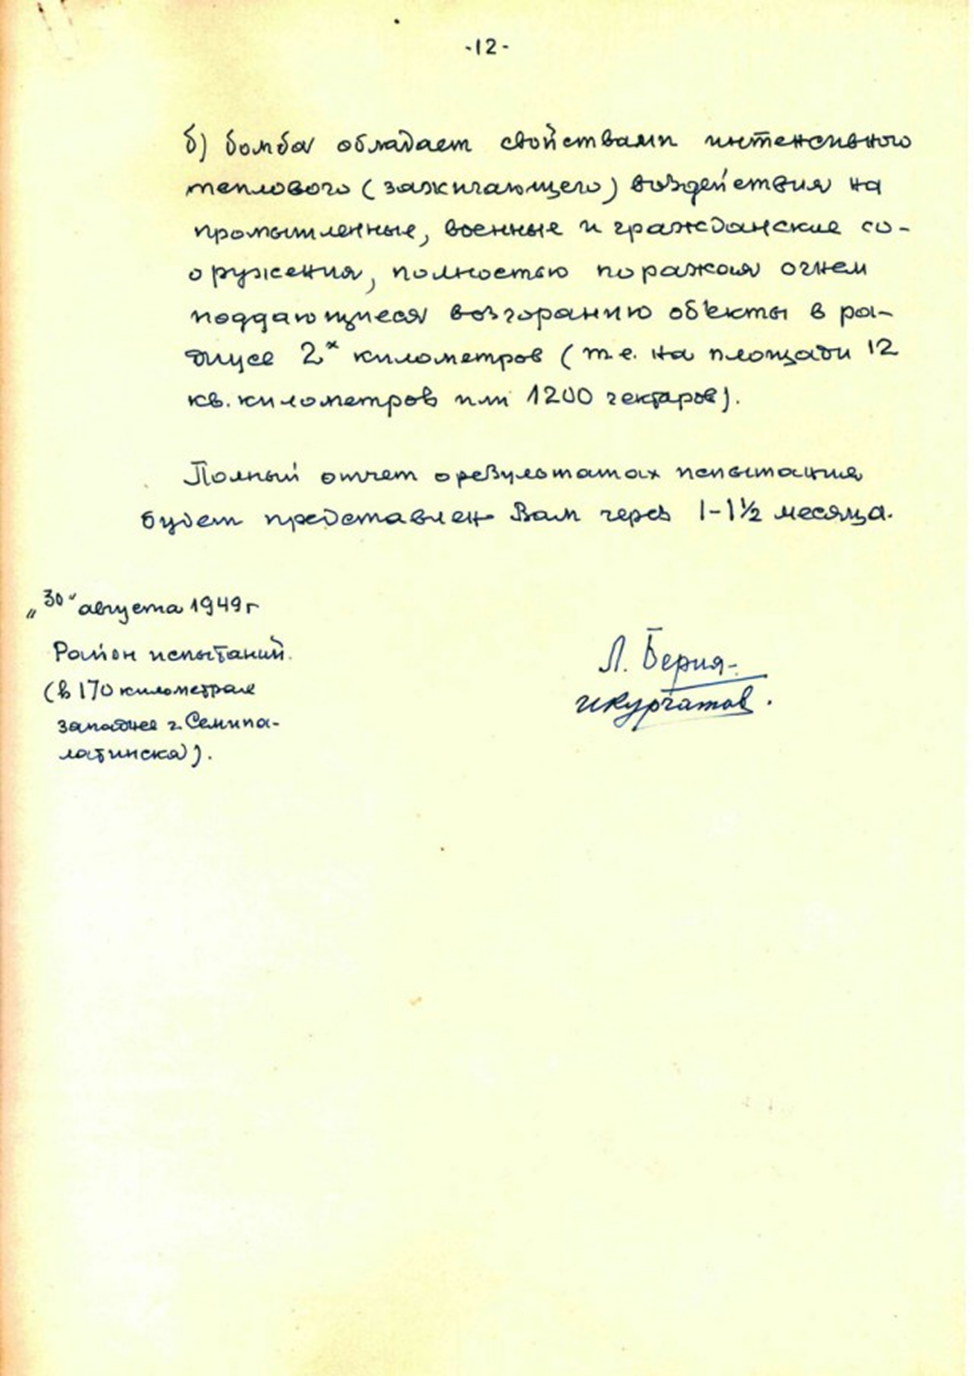 -12-
б) бомба обладает свойствами интенсивного
теплового (зажигающего) воздействия на
промышленные, военные и гражданские со-
оружения, полностью поражая огнем
поддающиеся возгоранию объекты в ра-
диусе 2х километров (т.е. на площади 12
кв. километров или 1200 гектаров).
Полный отчет о результатах испытания
будет представлен Вам через 1-1½ месяца.
„30" августа 1949 г
Район испытаний.
(в 170 километрах
западнее г. Семипа-
латинска).
Л. Берия
И Курчатов.